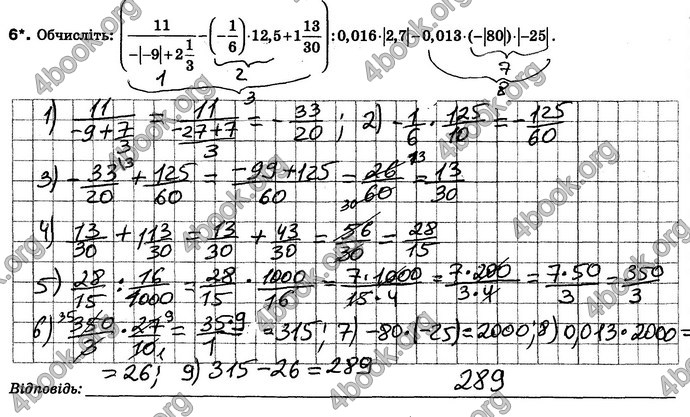 6*. Обчисліть: (11/(-|-9|+2 1/3) - (-1/6)·12,5+1 13/30) : 0,016·|2,7|-0,013·(-|80|)·|-25|.
1 2 3 7 8
1) 11/(-9+7/3) = 11/((-27+7)/3) = -33/20; 2) -1/6 · 125/10 = -125/60
3) -33/20 + 125/60 = (-99+125)/60 = 26/60 = 13/30
4) 13/30 + 1 13/30 = 13/30 + 43/30 = 56/30 = 28/15
5) 28/15 : 16/1000 = 28/15 · 1000/16 = 7·1000/15·4 = 7·200/3·4 = 7·50/3 = 350/3
6) 350/3 · 27/10 = 35·9/1 = 315; 7) -80·(-25)=2000; 8) 0,013·2000=
=26; 9) 315-26=289
Відповідь: 289
4book.org